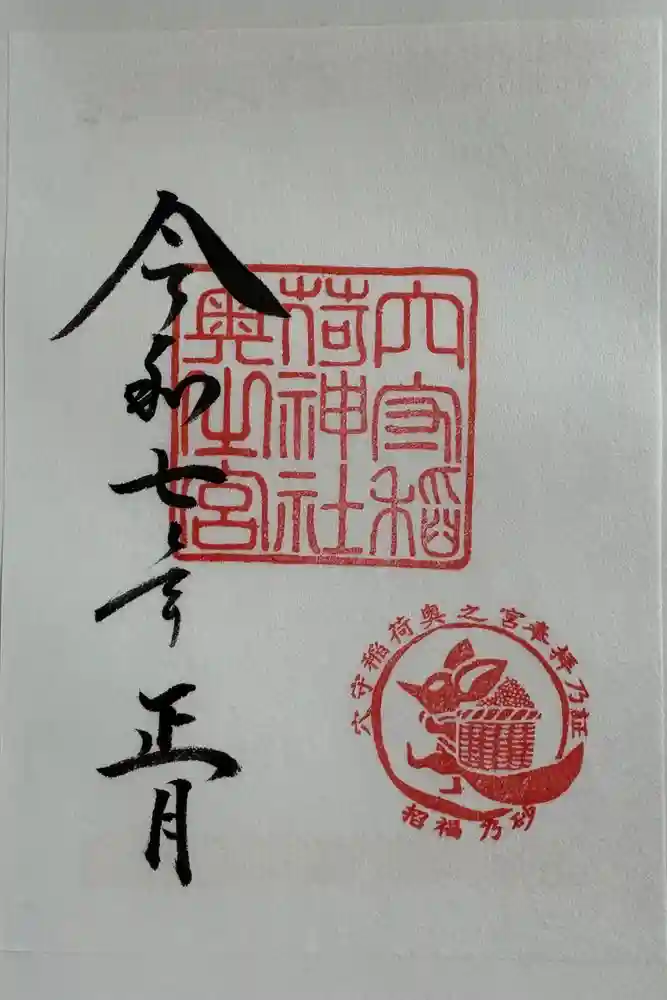 穴守稲
荷神社
奥之宮
穴守稲荷奥之宮奉拝乃証
招福乃砂
令和七年正月